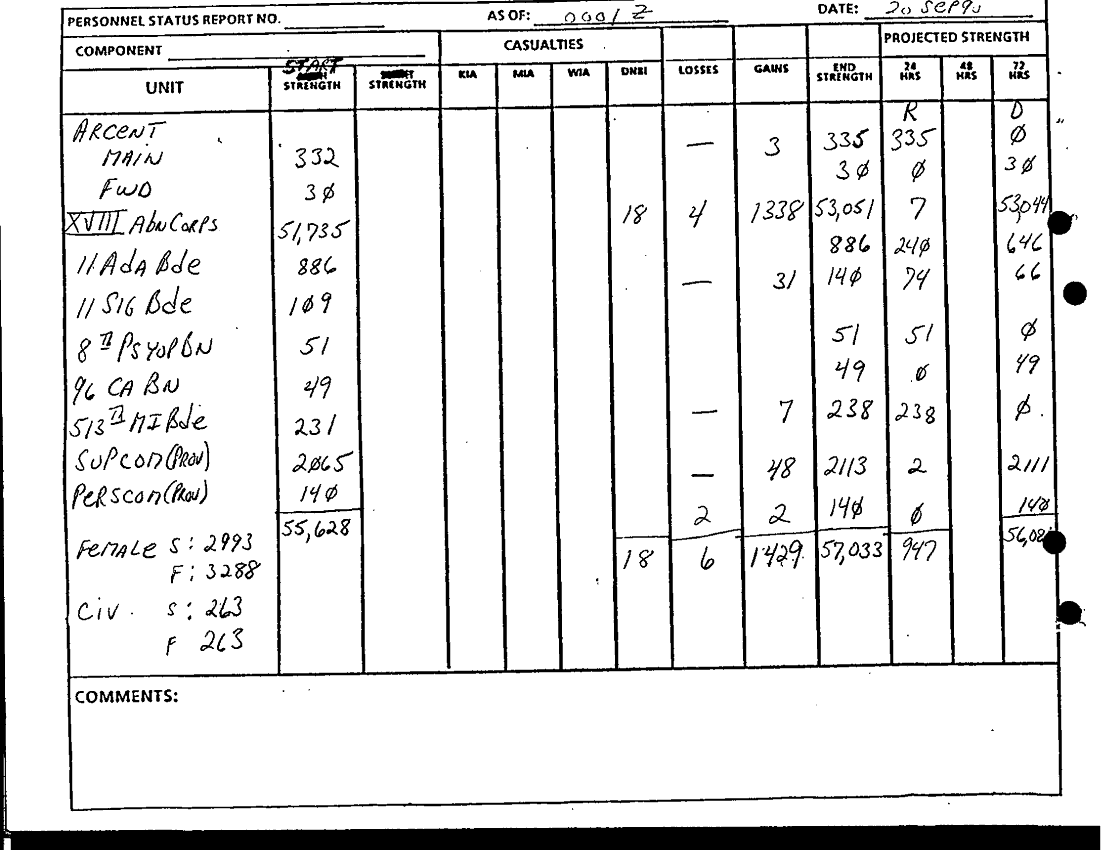 PERSONNEL STATUS REPORT NO. AS OF: 0001 Z DATE: 20 SEP 90
COMPONENT CASUALTIES PROJECTED STRENGTH
UNIT START STRENGTH STRENGTH KIA MIA WIA DNBI LOSSES GAINS END STRENGTH 24 HRS 48 HRS 72 HRS
R D
ARCENT
MAIN 332 — 3 335 335 Ø
FWD 3Ø 3Ø Ø 3Ø
XVIII Abn Corps 51,735 18 4 1338 53,051 7 53,044
11 AdA Bde 886 886 24Ø 646
11 SIG Bde 1Ø9 — 31 14Ø 74 66
8 TH PSYOP BN 51 51 51 Ø
96 CA BN 49 49 Ø 49
513 TH MI Bde 231 — 7 238 238 Ø
SUPCOM (PROV) 2Ø65 — 48 2113 2 2111
PERSCOM (PROV) 14Ø 2 2 14Ø Ø 14Ø
55,628 18 6 1429 57,033 947
FEMALE S: 2993
F: 3288
CIV. S: 263
F 263
COMMENTS: